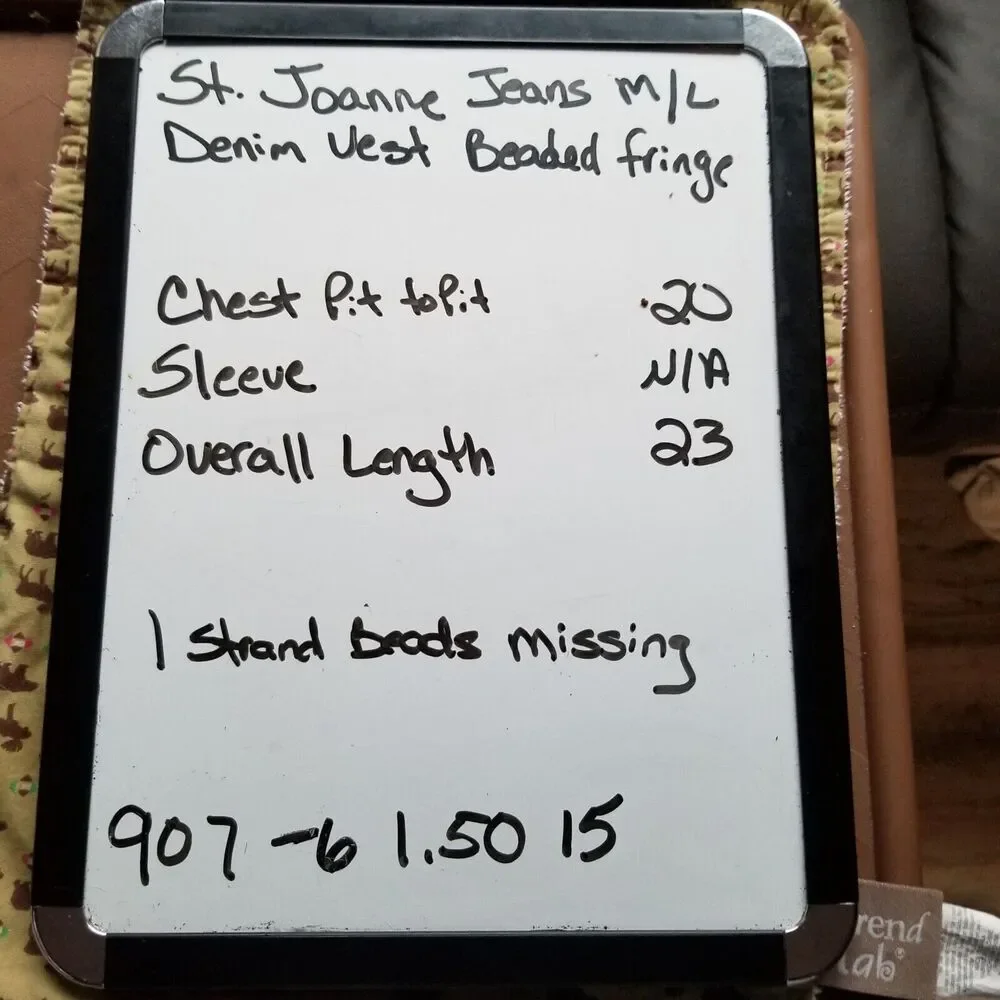 St. Joanne Jeans M/L
Denim Vest Beaded fringe
Chest Pit to Pit 20
Sleeve N/A
Overall Length 23
1 Strand Beads missing
907 -6 1.50 15
rend
lab®